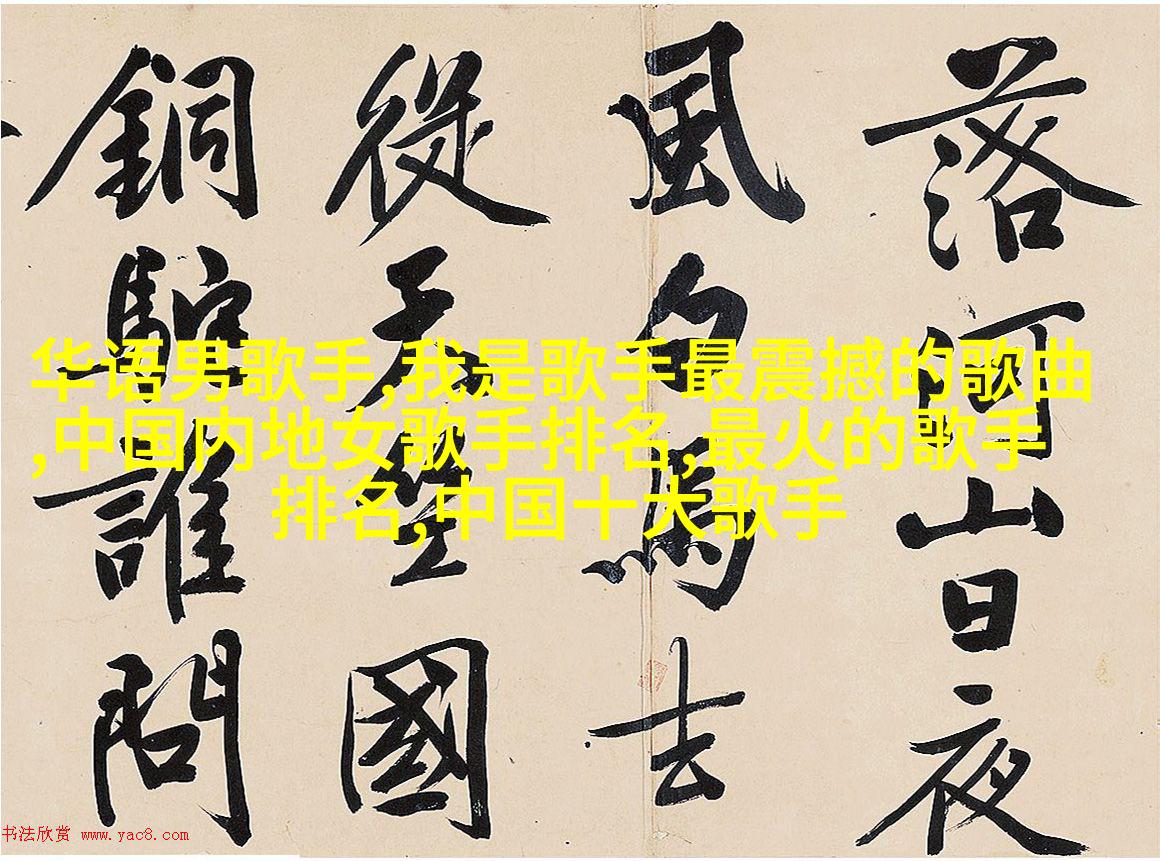 落河山日夜
風白馬去
從天竺國
銅駝誰問
华语男歌手,我是歌手最震撼的歌曲
,中国内地女歌手排名,最火的歌手
排名,中国十大歌手
书法欣赏 www.yac8.com